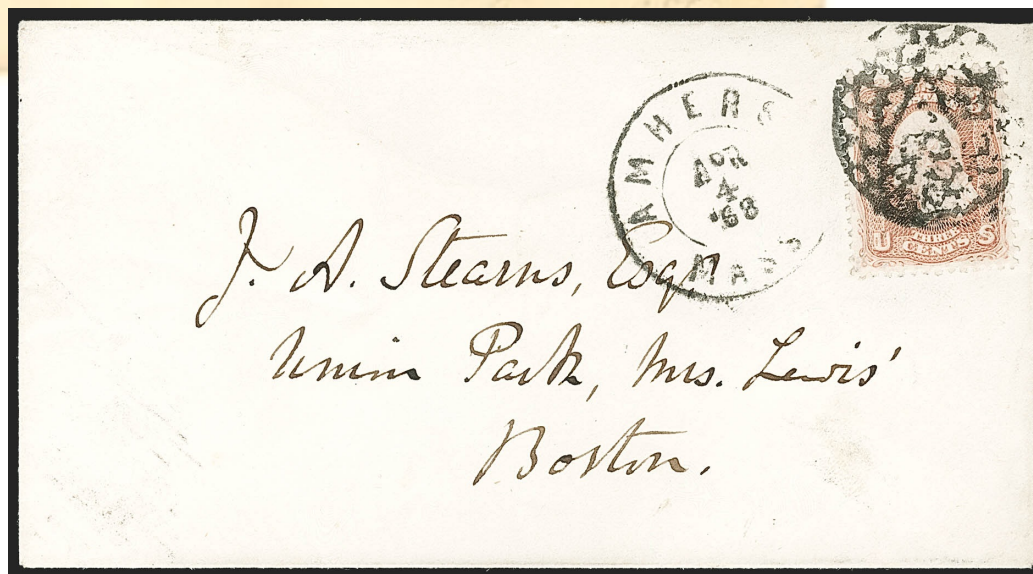 AMHERS
APR
4
'68
MASS
U THREE CENTS S
J. A. Stearns, Esqr.
Union Park, Mrs. Lewis'
Boston.